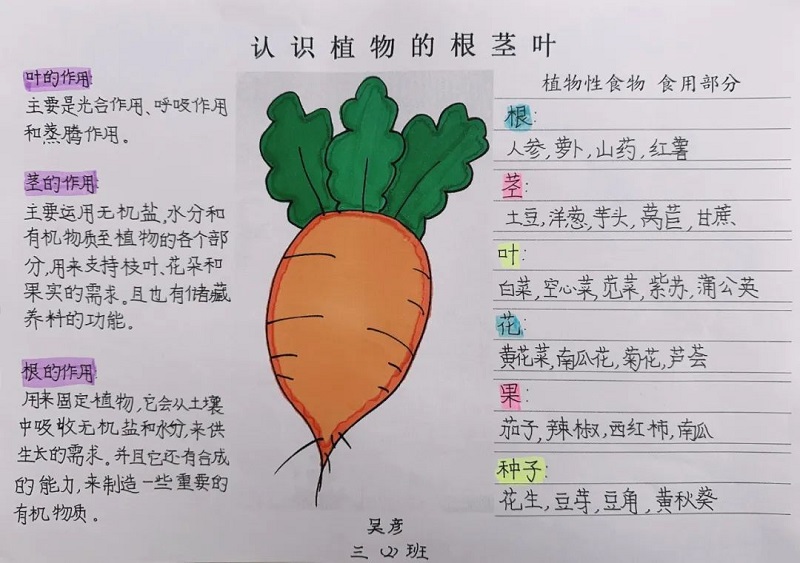 认识植物的根茎叶
叶的作用
主要是光合作用、呼吸作用
和蒸腾作用。
茎的作用
主要运用无机盐,水分和
有机物质至植物的各个部
分,用来支持枝叶、花朵和
果实的需求。且也有储藏
养料的功能。
根的作用
用来固定植物,它会从土壤
中吸收无机盐和水分,来供
生长的需求。并且它还有合成
的能力,来制造一些重要的
有机物质。
植物性食物 食用部分
根:
人参,萝卜,山药,红薯
茎:
土豆,洋葱,芋头,莴苣,甘蔗
叶:
白菜,空心菜,苋菜,紫苏,蒲公英
花:
黄花菜,南瓜花,菊花,芦荟
果:
茄子,辣椒,西红柿,南瓜
种子:
花生,豆芽,豆角,黄秋葵
吴彦
三(2)班